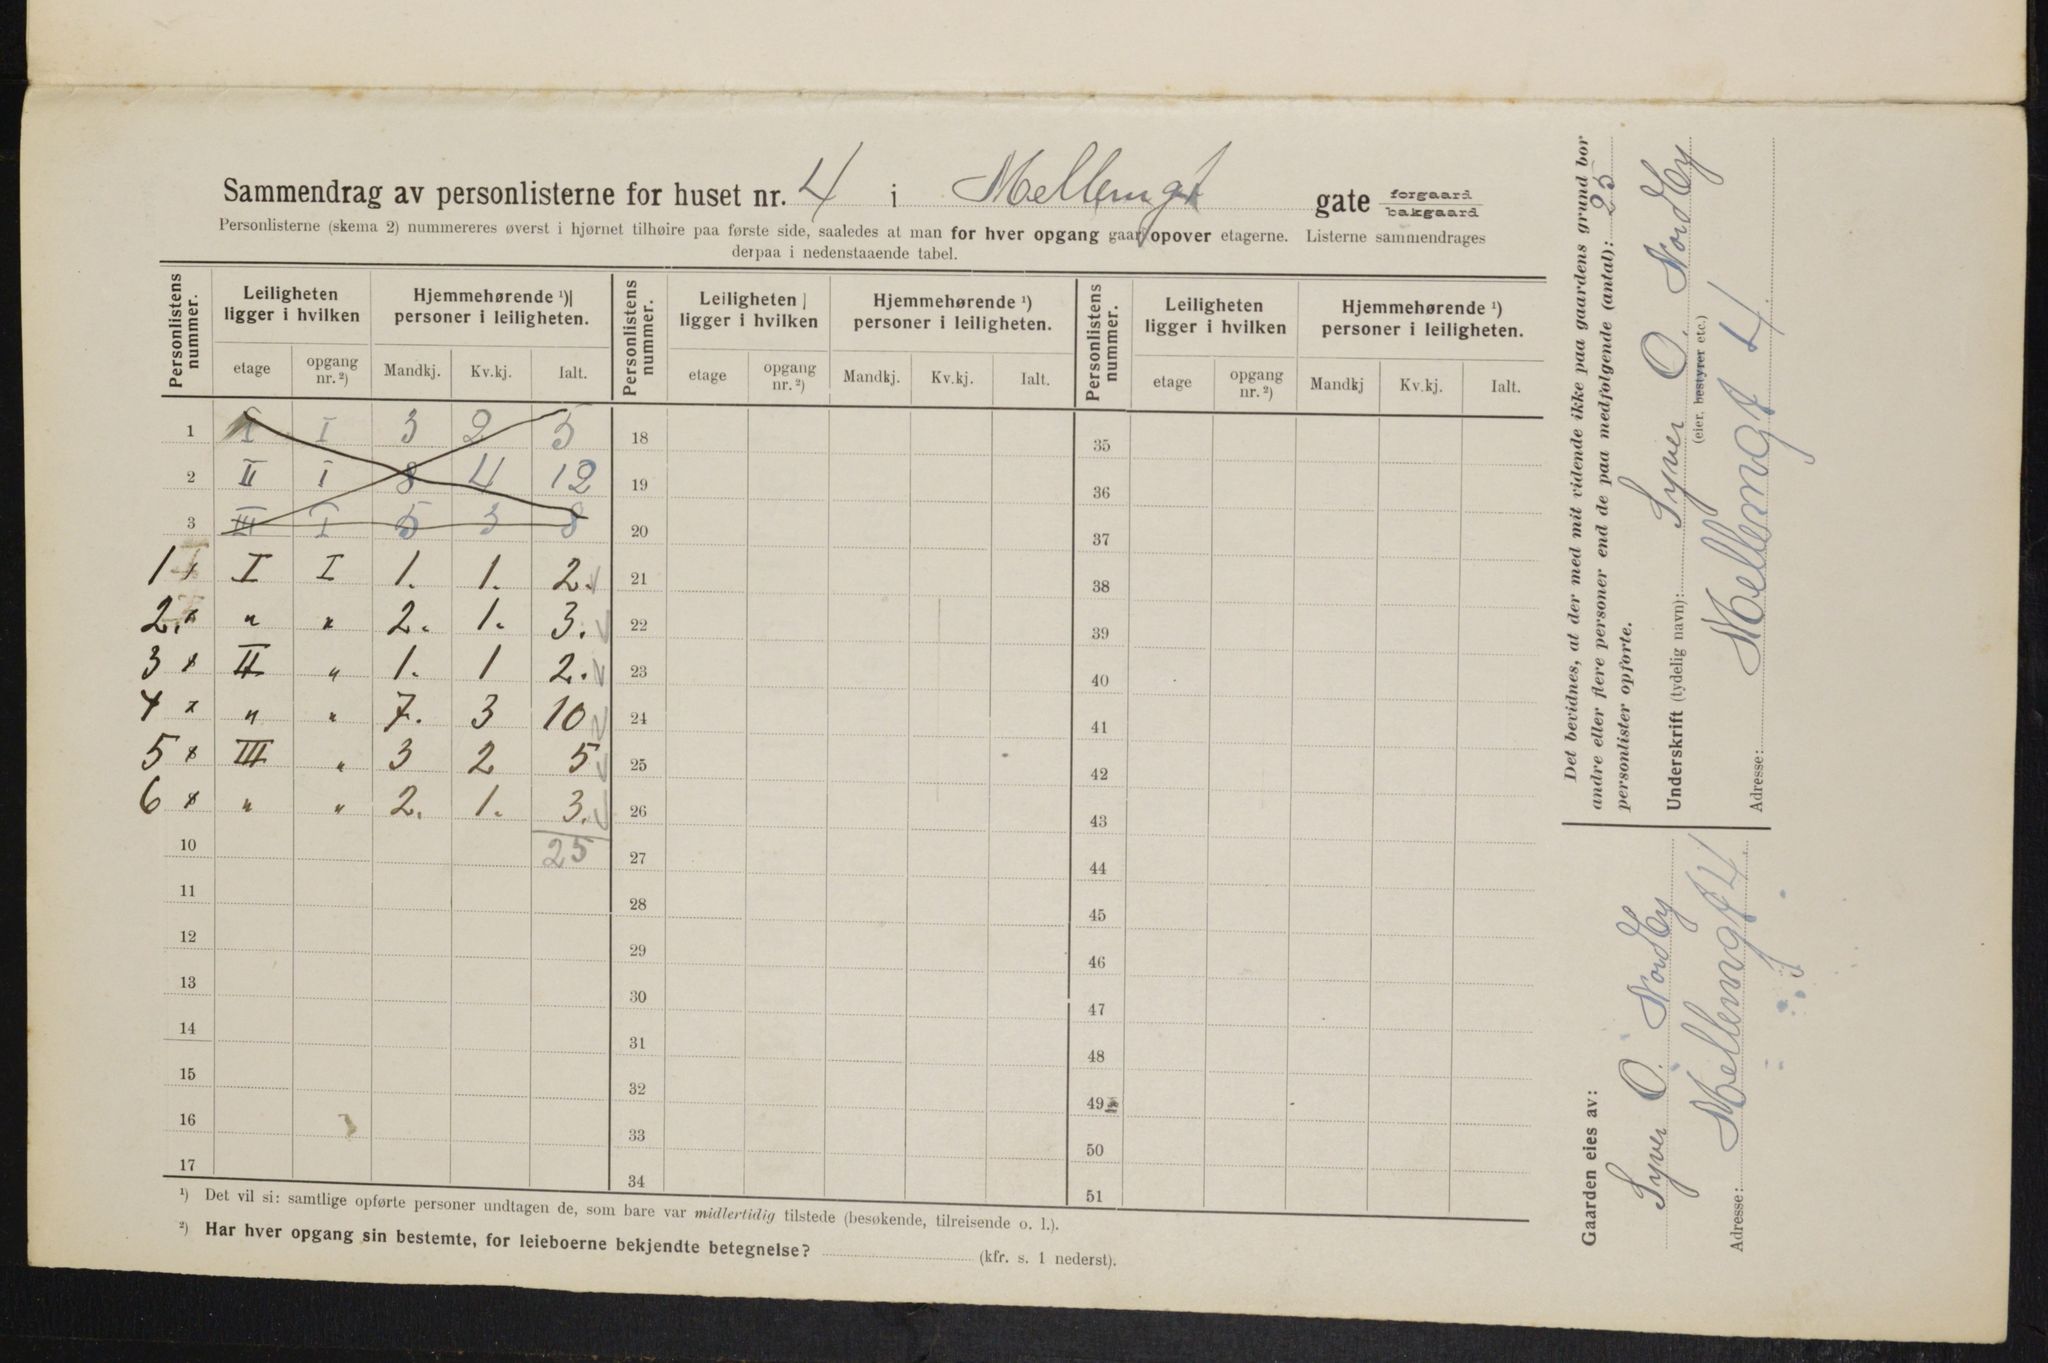 Sammendrag av personlisterne for huset nr. 4 i Mellemgt gate forgaard bakgaard
Personlisterne (skema 2) nummereres øverst i hjørnet tilhøire paa første side, saaledes at man for hver opgang gaar opover etagerne. Listerne sammendrages
derpaa i nedenstaaende tabel.
Personlistens nummer. Leiligheten ligger i hvilken Hjemmehørende ¹) personer i leiligheten. Personlistens nummer. Leiligheten ligger i hvilken Hjemmehørende ¹) personer i leiligheten. Personlistens nummer. Leiligheten ligger i hvilken Hjemmehørende ¹) personer i leiligheten.
etage opgang nr. ²) Mandkj. Kv.kj. Ialt. etage opgang nr. ²) Mandkj. Kv.kj. Ialt. etage opgang nr. ²) Mandkj Kv.kj. Ialt.
1 I I 3 2 5 18 35
2 II I 8 4 12 19 36
3 III I 5 3 8 20 37
1 I I 1. 1. 2. 21 38
2. " " 2. 1. 3. 22 39
3 II " 1. 1 2. 23 40
4 " " 7. 3 10 24 41
5 III " 3 2 5 25 42
6 " " 2. 1. 3. 26 43
10 25 27 44
11 28 45
12 29 46
13 30 47
14 31 48
15 32 49
16 33 50
17 34 51
¹) Det vil si: samtlige opførte personer undtagen de, som bare var midlertidig tilstede (besøkende, tilreisende o. l.).
²) Har hver opgang sin bestemte, for leieboerne bekjendte betegnelse? (kfr. s. 1 nederst).
Det bevidnes, at der med mit vidende ikke paa gaardens grund bor
andre eller flere personer end de paa medfølgende (antal): 25
personlister opførte.
Underskrift (tydelig navn): Syver O. Nordby
(eier, bestyrer etc.)
Adresse: Mellemgt 4.
Gaarden eies av:
Syver O. Nordby
Adresse: Mellemgt 4.